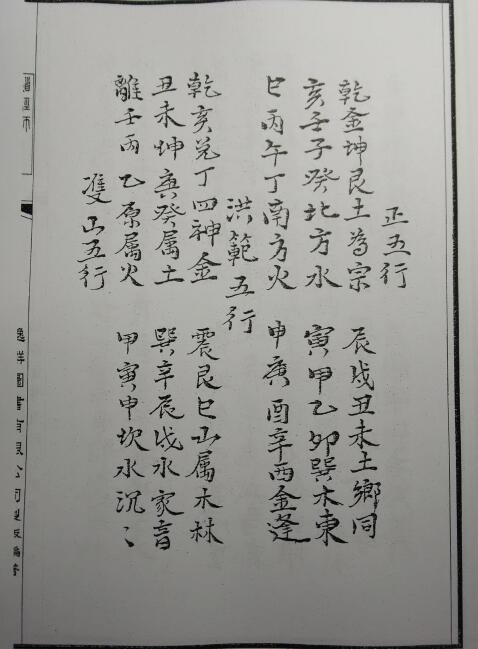 正五行
乾金坤艮土為宗 辰戌丑未土鄉同
亥壬子癸北方水 寅甲乙卯巽木東
巳丙午丁南方火 申庚酉辛西金逢
洪範五行
乾亥兌丁四神金 震艮巳山属木林
丑未坤庚癸属土 巽辛辰戌水家音
離壬丙乙原属火 甲寅申坎水沉〻
雙山五行
逸群圖書有限公司